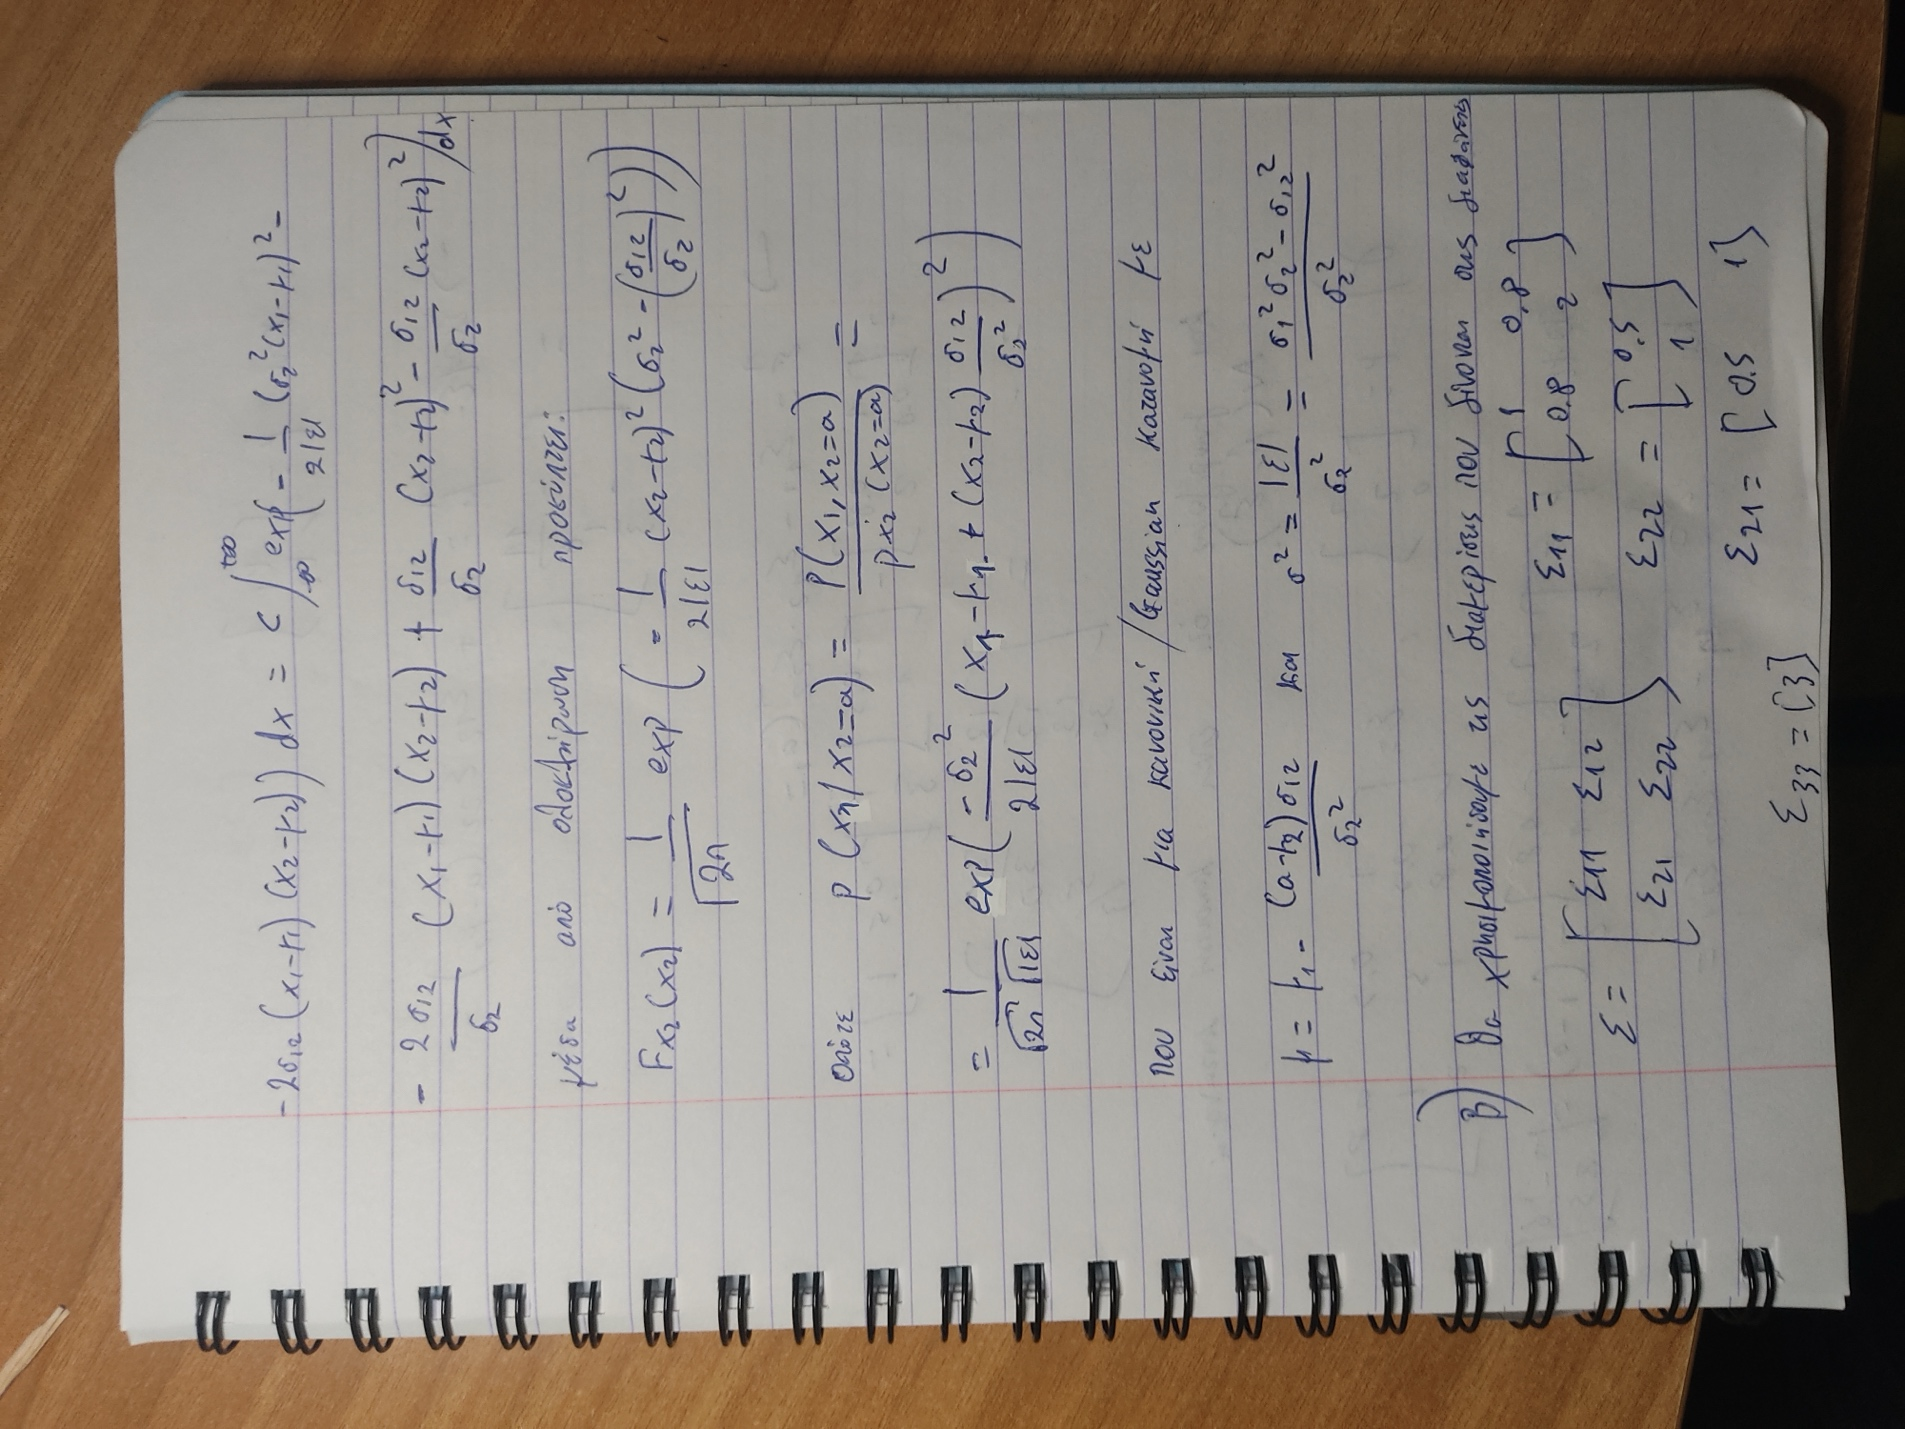 -2σ12(x1-μ1)(x2-μ2)) dx = c ∫_{-∞}^{+∞} exp(- 1/(2|Σ|) (σ2²(x1-μ1)² -
- 2σ12/σ2 (x1-μ1)(x2-μ2) + σ12/σ2 (x2-μ2)² - σ12/σ2 (x2-μ2)²) dx
μέσα από ολοκλήρωση προκύπτει:
Fx2(x2) = 1/√2π exp(- 1/(2|Σ|) (x2-μ2)² (σ2² - (σ12/σ2)²))
οπότε p(x1/x2=a) = P(x1,x2=a)/Px2(x2=a) =
= 1/(√2π √|Σ|) exp(-σ2²/(2|Σ|) (x1-μ1+(x2-μ2) σ12/σ2²)²)
που είναι μια κανονική/Gaussian κατανομή με
μ = μ1 - (a-μ2)σ12/σ2² και σ² = |Σ|/σ2² = σ1²σ2²-σ12²/σ2²
B) Θα χρησιμοποιήσουμε τις διαμερίσεις που δίνονται στις διαφάνειες
Σ = [Σ11 Σ12 Σ21 Σ22] Σ11 = [1 0,8 0.8 2]
Σ22 = [0.5 1]
Σ21 = [0.5 1]
Σ33 = [3]